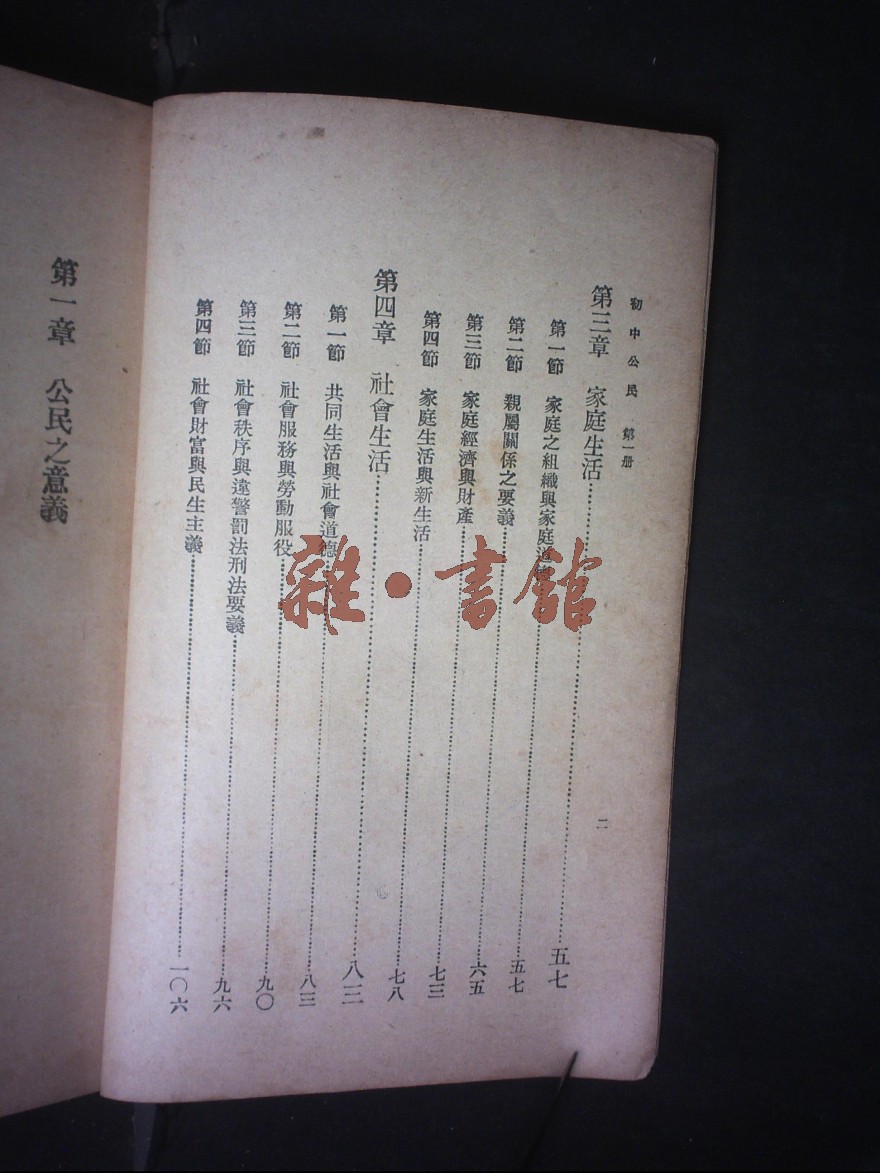 初中公民 第一册
二
第三章 家庭生活……五七
第一節 家庭之組織與家庭道……五七
第二節 親屬關係之要義……六五
第三節 家庭經濟與財產……七三
第四節 家庭生活與新生活……七八
第四章 社會生活……八三
第一節 共同生活與社會道德……八三
第二節 社會服務與勞動服役……九〇
第三節 社會秩序與違警罰法刑法要義……九六
第四節 社會財富與民生主義……一〇六
第一章 公民之意義
雜·書館